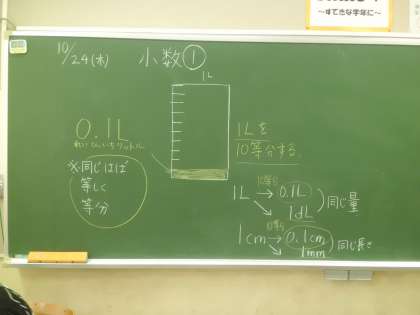 ～すてきな学年に～
10/24(木)
小数①
1L
0.1L
れいてんいちリットル
※同じはば
等しく
等分
1Lを
10等分する。
1L → 0.1L
10等分
1dL
同じ量
1cm → 0.1cm
10等分
1mm
同じ長さ